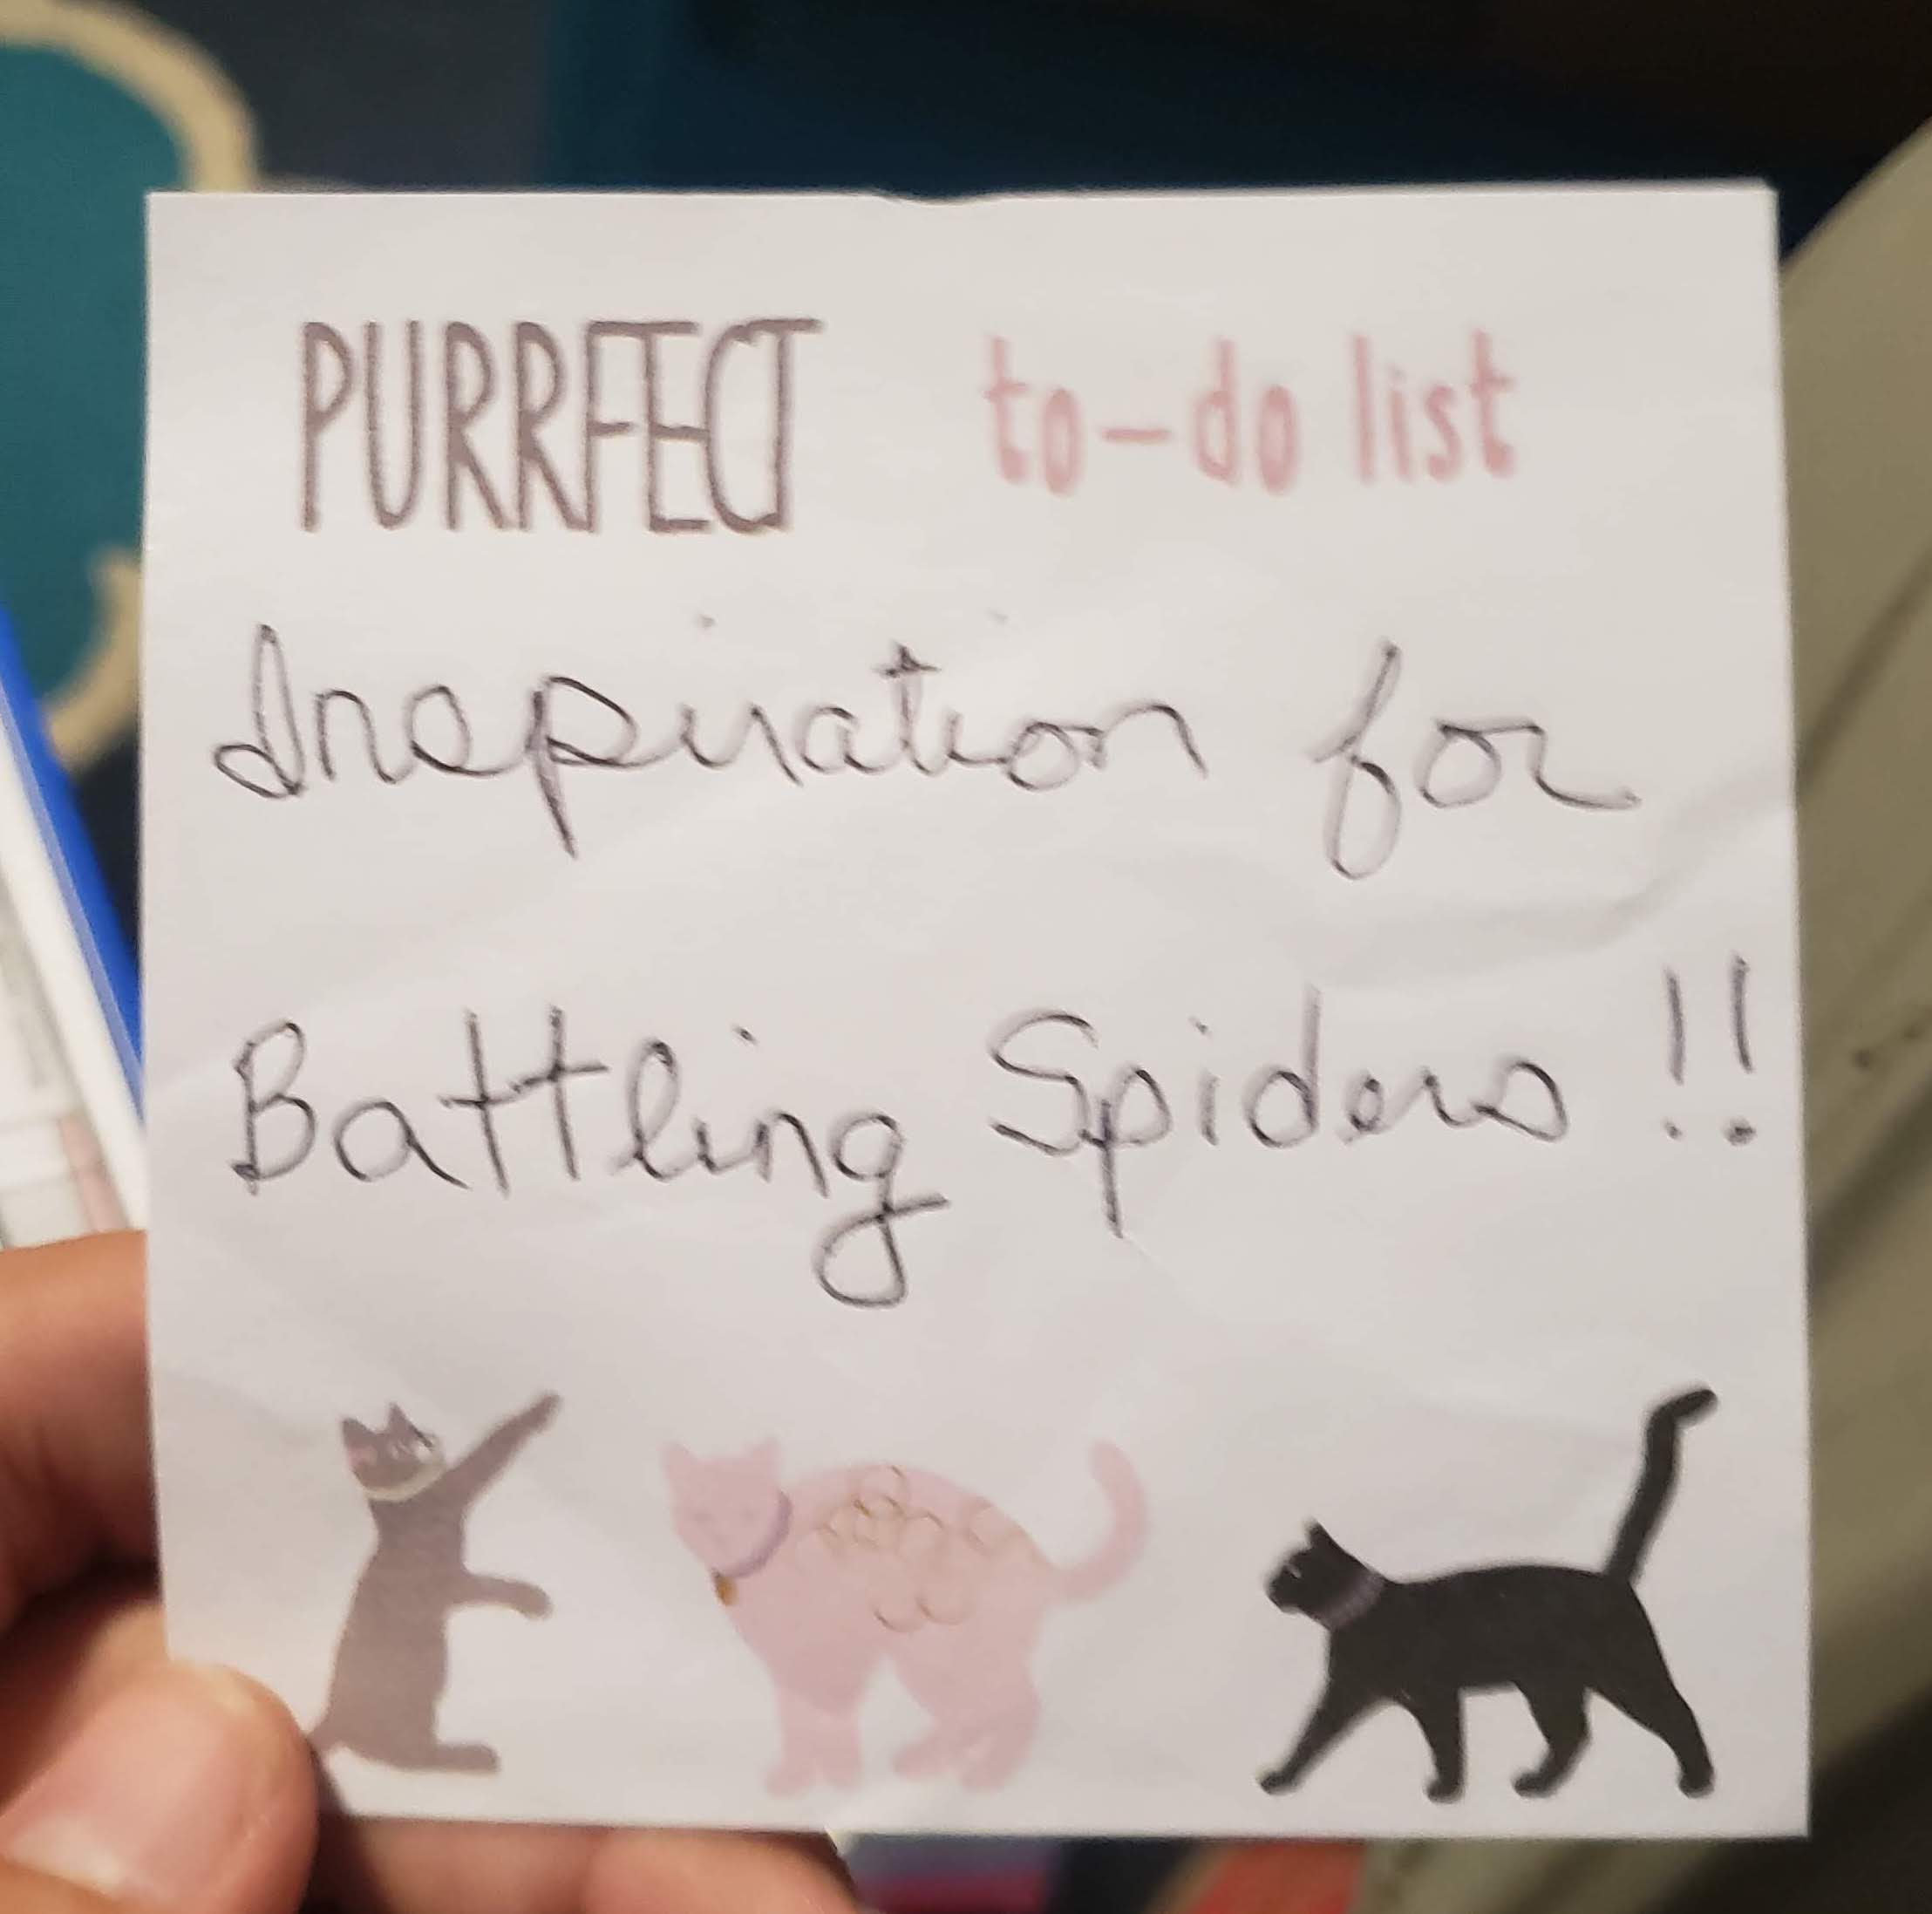 PURRFECT to-do list
Inspiration for
Battling Spiders !!